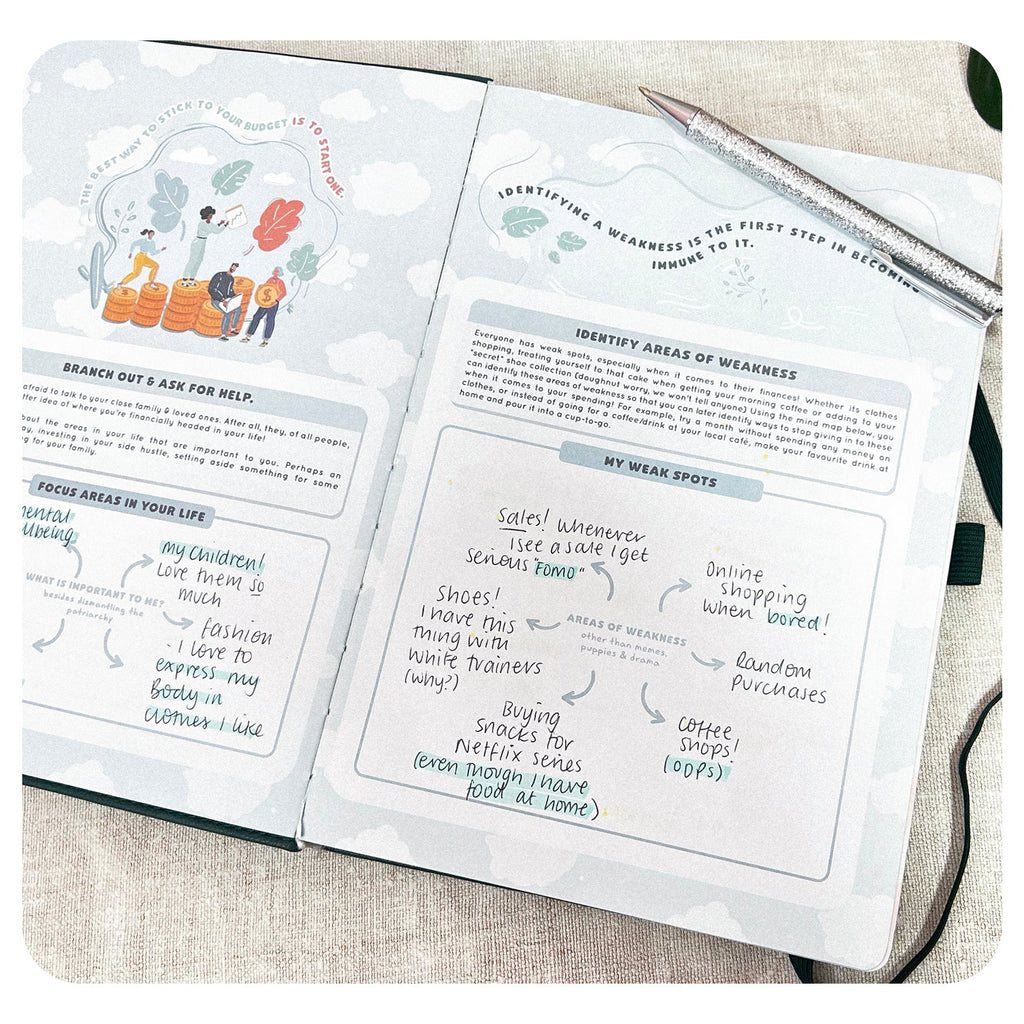 THE BEST WAY TO STICK TO YOUR BUDGET IS TO START ONE.
BRANCH OUT & ASK FOR HELP.
afraid to talk to your close family & loved ones. After all, they, of all people,
idea of where you're financially headed in your life!
about the areas in your life that are important to you. Perhaps an
investing in your side hustle, setting aside something for some
for your family.
FOCUS AREAS IN YOUR LIFE
my children!
Love them so
much
WHAT IS IMPORTANT TO ME?
besides dismantling the
patriarchy
fashion
- I love to
express my
Body in
clothes I like
IDENTIFYING A WEAKNESS IS THE FIRST STEP IN BECOMING
IMMUNE TO IT.
IDENTIFY AREAS OF WEAKNESS
Everyone has weak spots, especially when it comes to their finances! Whether its clothes
shopping, treating yourself to that cake when getting your morning coffee or adding to your
"secret" shoe collection (doughnut worry, we won't tell anyone) Using the mind map below, you
can identify these areas of weakness so that you can later identify ways to stop giving in to these
when it comes to your spending! For example, try a month without spending any money on
clothes, or instead of going for a coffee/drink at your local café, make your favourite drink at
home and pour it into a cup-to-go.
MY WEAK SPOTS
Sales! Whenever
I see a sale I get
serious "FOMO"
Online
shopping
when bored!
Shoes!
I have this
thing with
white trainers
(why?)
AREAS OF WEAKNESS
other than memes,
puppies & drama
Random
purchases
Buying
snacks for
Netflix series
(even though I have
food at home)
coffee
shops!
(OOPS)